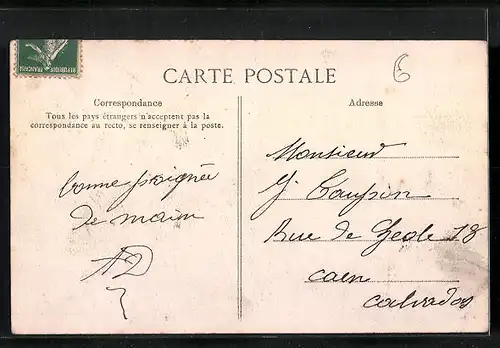 REPUBLIQUE FRANÇAISE
6
CARTE POSTALE
Correspondance
Tous les pays étrangers n'acceptent pas la
correspondance au recto, se renseigner à la poste.
bonne poignée
de main
AD
Adresse
Monsieur
J. Coupin
Rue de Geole 18
Caen
Calvados